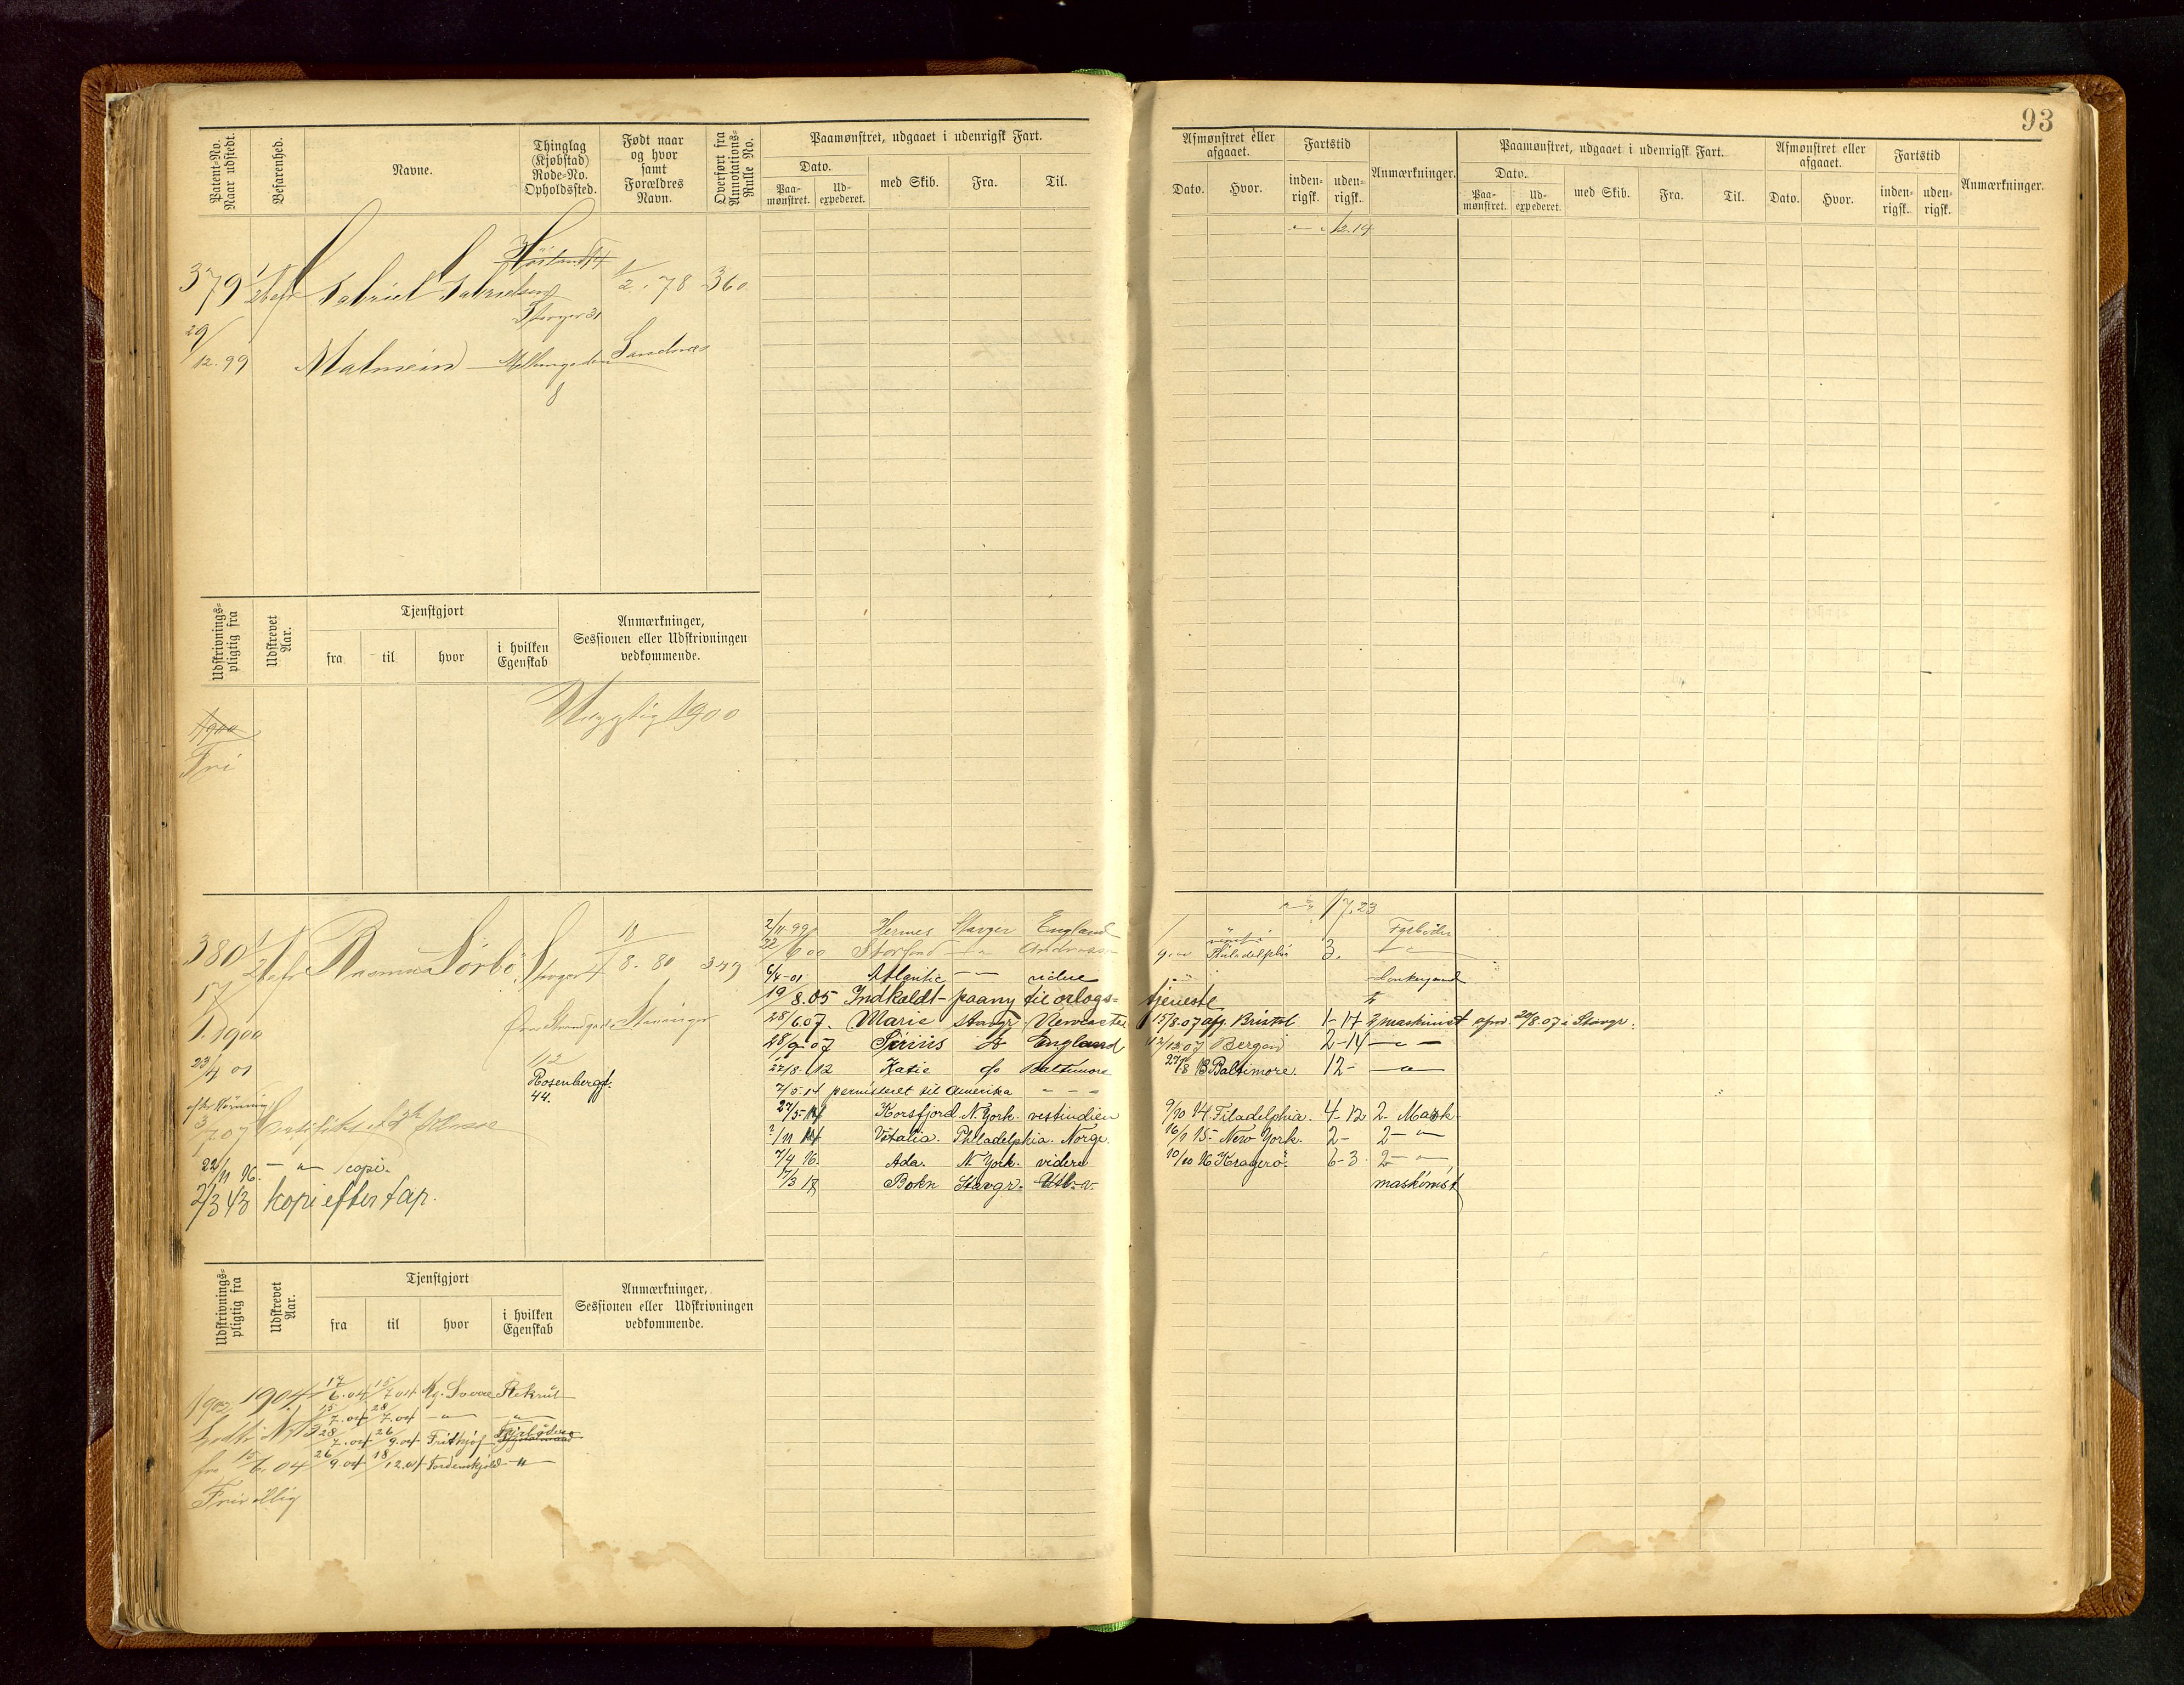 93
Patent-No. Naar udstedt.
Befarenhed.
Navne.
Thinglag (Kjøbstad) Rode-No. Opholdssted.
Født naar og hvor samt Forældres Navn.
Overført fra Annotations-Rulle No.
Paamønstret, udgaaet i udenrigsk Fart.
Dato.
Paa-mønstret.
Ud-expederet.
med Skib.
Fra.
Til.
Afmønstret eller afgaaet.
Dato.
Hvor.
Fartstid
inden-rigsk.
uden-rigsk.
Anmærkninger.
Paamønstret, udgaaet i udenrigsk Fart.
Dato.
Paa-mønstret.
Ud-expederet.
med Skib.
Fra.
Til.
Afmønstret eller afgaaet.
Dato.
Hvor.
Fartstid
inden-rigsk.
uden-rigsk.
Anmærkninger.
12.14
379 Gabriel Gabrielsen 1/2.78 360
Stavger 31
29/12.99 Malmein Sandnes
8
Udskrivnings-pligtig fra
Udskrevet Aar.
Tjenstgjort
fra
til
hvor
i hvilken Egenskab
Anmærkninger, Sessionen eller Udskrivningen vedkommende.
1900
Fri
1900
17.23
380 Rasmus Sørbø Stavger 11/8.80 349
17/1.1900 Stavanger
23/4 01
Rosenbergt. 44.
3/7 07
22/11 16. – " – copi.
2/3 43 kopi efter tap.
2/11-99 Hermes Stavger England Fyrbøder
22/6 00 Storfond – " – Philadelphia 3.
6/4-01 Atlantic – " – videre
19/8.05 Indkaldt paany til orlogs-tjeneste
28/6.07. Marie Stavgr Newcastle 15/8.07 afg. Bristol 1-17 2 maskinist afm. 20/8.07 i Stavgr.
28/9.07 Sirius do England 12/12.07 Bergen 2-14 – " –
22/8.12 Katie do Baltimore 27/8 13 Baltimore. 12- – " –
7/5.14 permitteret til Amerika – – –
27/5-14 Korsfjord N. York. vestindien 9/10 14 Filadelphia. 4-12 2. Mask.
?/11 14 Vitalia. Philadelphia. Norge. 16/1 15- New York. 2- 2- "
7/4 16. Ada. N. York. videre 10/10 16 Kragerø. 6-3 2- "
17/3 18 Bokn Stavgr. maskinist
Udskrivnings-pligtig fra
Udskrevet Aar.
Tjenstgjort
fra
til
hvor
i hvilken Egenskab
Anmærkninger, Sessionen eller Udskrivningen vedkommende.
1902 1904 17/6.04 15/7.04 Kg. Sverre Rekrut
15/7.04 28/7.04 – " – – " –
28/7.04 26/9.04 Frithjof Fyrbøder
fra 15/6.04 26/9.04 18/12.04 Tordenskjold – " –
Frivillig